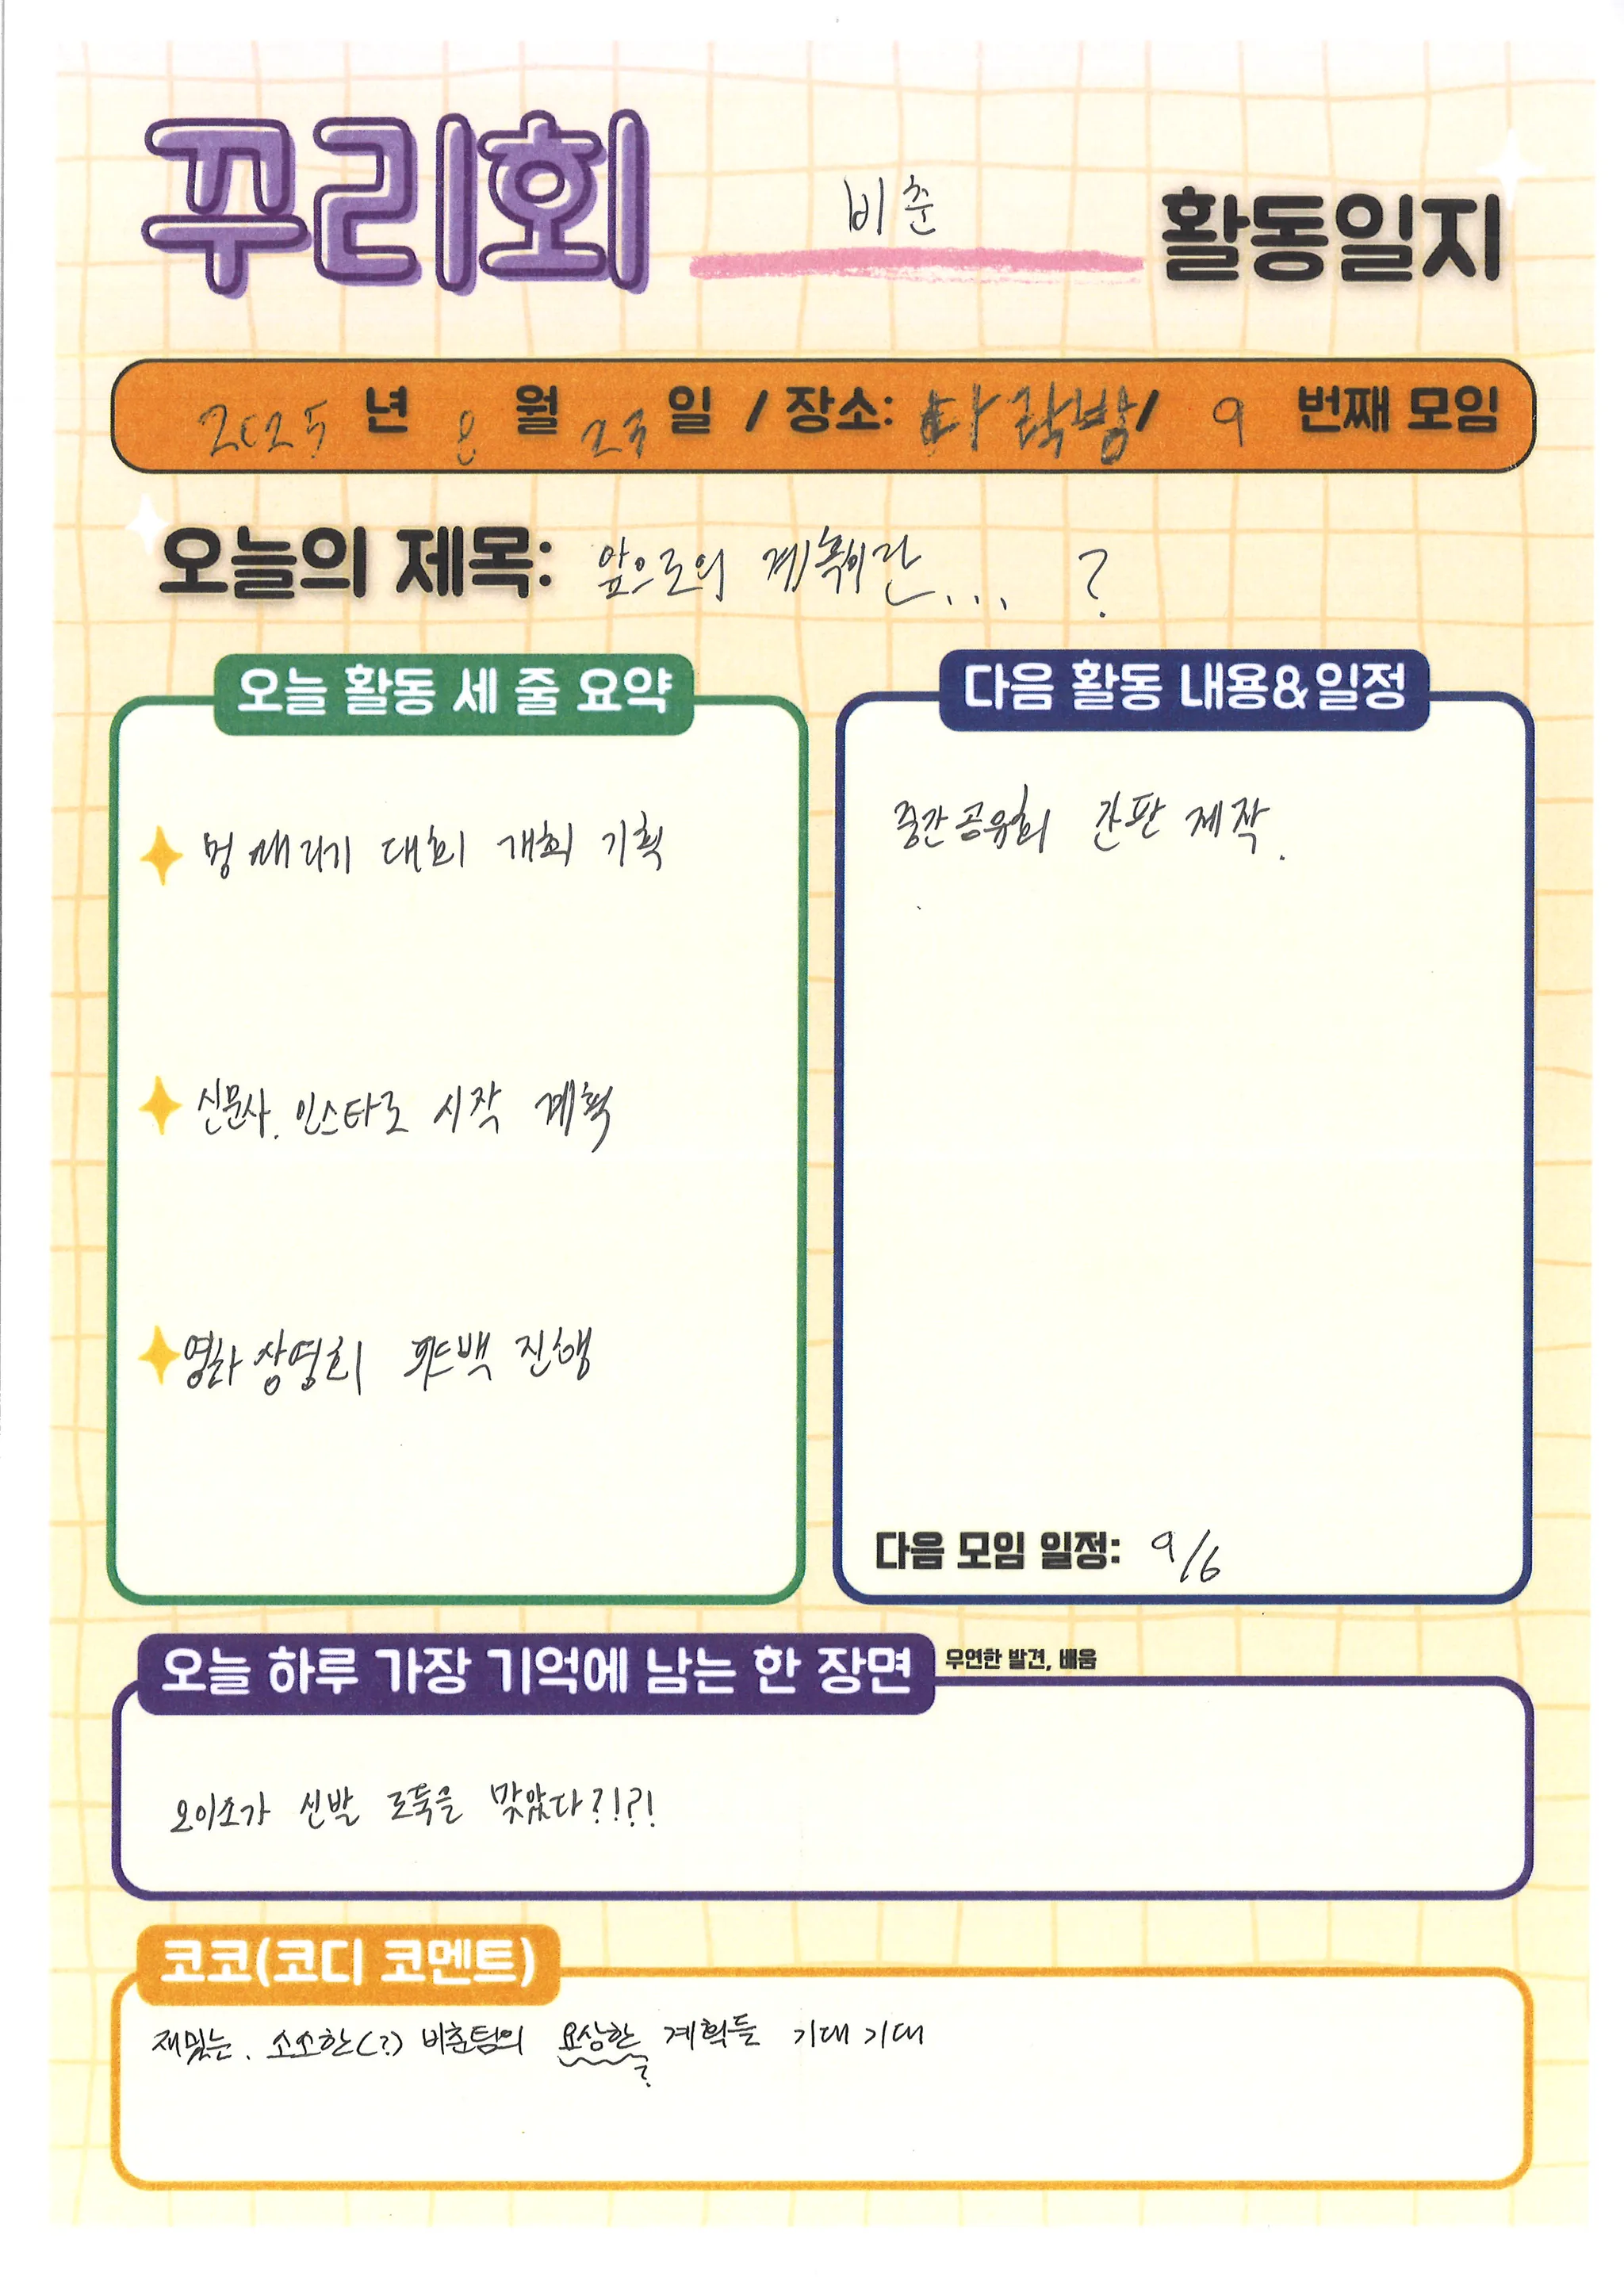 꾸리회 비춘 활동일지
2025년 8월 23일 / 장소: 다락방 / 9 번째 모임
오늘의 제목: 앞으로의 계획이란... ?
오늘 활동 세 줄 요약
멍 때리기 대회 개최 기획
신문사. 인스타로 시작 계획
영화 상영회 피드백 진행
다음 활동 내용&일정
중간공유회 간판 제작.
다음 모임 일정: 9/6
오늘 하루 가장 기억에 남는 한 장면 우연한 발견, 배움
오이소가 신발 도둑을 맞았다?!?!
코코(코디 코멘트)
재밌는. 소소한(?) 비춘팀의 요상한 계획들 기대 기대
?